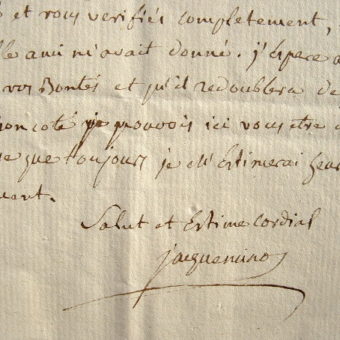 et vous verifiés completement,
ami m'avait donné. j'Espere
vos Bontés et qu'il redoublera de
mon coté je pouvois ici vous etre
que toujours je m'Estimerai heur
uant.
Salut et Estime Cordial
jacqueminot